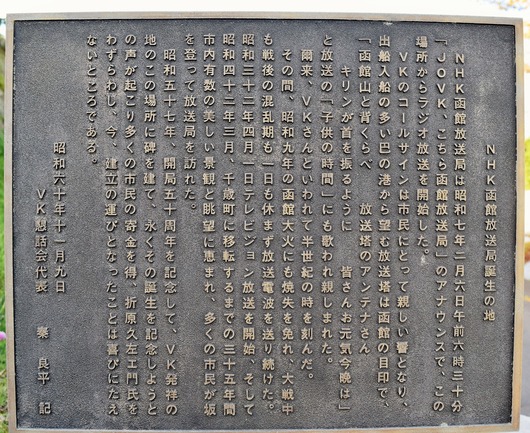 NHK函館放送局誕生の地
NHK函館放送局は昭和七年二月六日午前六時三十分
「JOVK、こちら函館放送局」のアナウンスで、この
場所からラジオ放送を開始した。
VKのコールサインは市民にとって親しい響となり、
出船入船の多い巴の港から望む放送塔は函館の目印で、
「函館山と背くらべ 放送塔のアンテナさん
キリンが首を振るように 皆さんお元気今晩は」
と放送の「子供の時間」にも歌われ親しまれた。
爾来、VKさんといわれて半世紀の時を刻んだ。
その間、昭和九年の函館大火にも焼失を免れ、大戦中
も戦後の混乱期も一日も休まず放送電波を送り続けた。
昭和三十二年四月一日テレビジョン放送を開始、そして
昭和四十二年三月、千歳町に移転するまでの三十五年間
市内有数の美しい景観と眺望に恵まれ、多くの市民が坂
を登って放送局を訪れた。
昭和五十七年、開局五十周年を記念して、VK発祥の
地のこの場所に碑を建て、永くその誕生を記念しようと
の声が起こり多くの市民の寄金を得、折原久左エ門氏を
わずらわし、今、建立の運びとなったことは喜びにたえ
ないところである。
昭和六十年十一月九日
VK懇話会代表 秦 良平 記